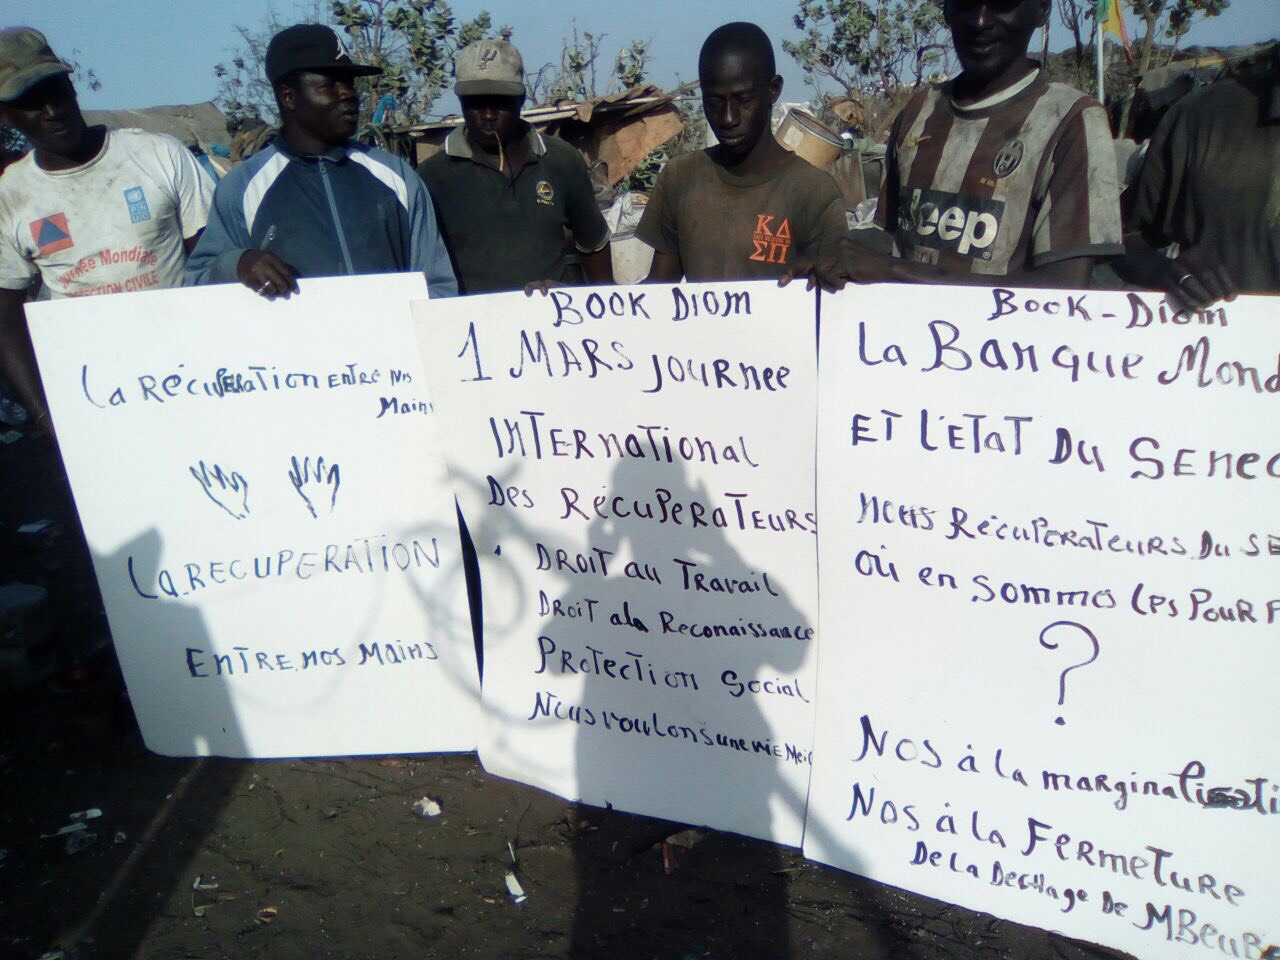 Journée Mondiale
PROTECTION CIVILE
KΔ
ΣΠ
Jeep
La RÉCUPERATION ENTRE NOS
Mains
La RECUPERATION
ENTRE NOS MAINS
BOOK DIOM
1 MARS JOURNEE
INTERNATIONAL
Des RÉCUPERATEURS
DROIT au Travail
DROIT ala Reconaissance
PROTECTION Social
Nous voulons une vie Meil
Book-Diom
La BANQUE Mond
ET L'ETAT DU SENEG
NOUS RÉCUPERATEURS DU SE
Où en sommo les POUR P
?
Nos à la marginalisati
Nos à la FERMETURE
De la Dechage De MBeuBe